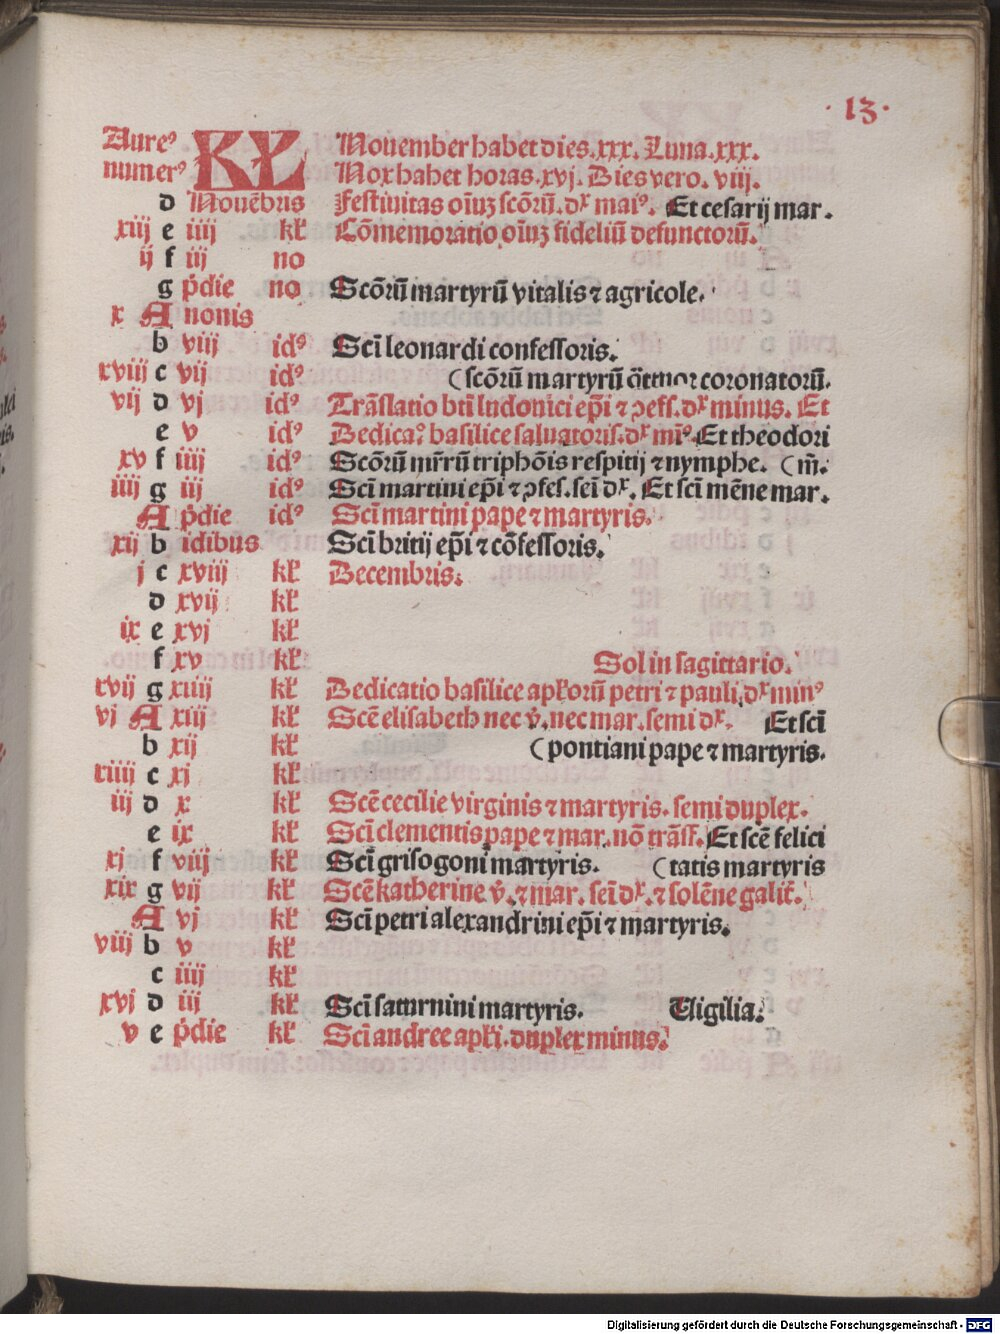 · 13 ·
Aureꝰ KL Nouember habet dies. xxx. Luna. xxx.
numerꝰ Nox habet horas. xvj. Dies vero. viij.
d Nouēbris Festiuitas oīuꝫ scōrū. dx maiꝰ. Et cesarij mar.
xiij e iiij kł Cōmemoratio oīuꝫ fideliū defunctorū.
ij f iij no
g p̄die no Scōrū martyrū vitalis ⁊ agricole.
x A nonis
b viij idꝰ Scī leonardi confessoris.
xviij c vij idꝰ (scōrū martyrū q̄ttuor coronatorū.
vij d vj idꝰ Trāslatio bti ludouici ep̄i ⁊ ꝯfess. dx minus. Et
e v idꝰ Dedicaꝰ basilice saluatoris. dx mīꝰ. Et theodori
xv f iiij idꝰ Scōrū mr̄rū triphōis respitij ⁊ nymphe. (m̄.
iiij g iij idꝰ Scī martini ep̄i ⁊ ꝯfes. sei dx. Et scī mēne mar.
A p̄die idꝰ Scī martini pape ⁊ martyris.
xij b idibus Scī britij ep̄i ⁊ cōfessoris.
j c xviij kł Decembris.
d xvij kł
ix e xvj kł
f xv kł Sol in sagittario.
xvij g xiiij kł Dedicatio basilice apłorū petri ⁊ pauli. dx minꝰ
vj A xiij kł Scē elisabeth nec v̄. nec mar. semi dx. Et scī
b xij kł (pontiani pape ⁊ martyris.
xiiij c xj kł
iij d x kł Scē cecilie virginis ⁊ martyris. semi duplex.
e ix kł Scī clementis pape ⁊ mar. nō trāsf. Et scē felici
xj f viij kł Scī grisogoni martyris. (tatis martyris
xix g vij kł Scē katherine v̄. ⁊ mar. sei dx. ⁊ solēne galīc.
A vj kł Scī petri alexandrini ep̄i ⁊ martyris.
viij b v kł
c iiij kł
xvj d iij kł Scī saturnini martyris. Uigilia.
v e p̄die kł Scī andree apłi. duplex minus.
Digitalisierung gefördert durch die Deutsche Forschungsgemeinschaft - DFG